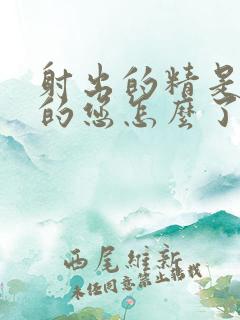 射出的精是
的您怎麼了
西尾維新
未经同意禁止转载